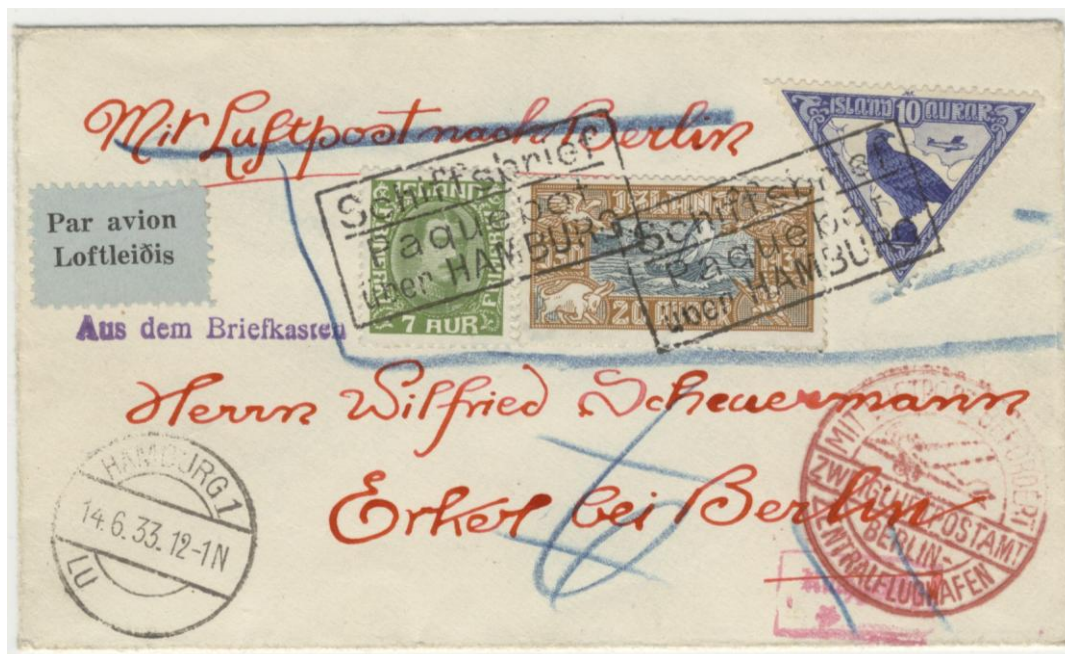 Mit Luftpost nach Berlin
ISLAND 10 AURAR
Par avion
Loftleiðis
ISLAND
7 AUR
ISLAND
20 AURAR
Schiffsbrief
Paquebot
über HAMBURG
Schiffsbrief
Paquebot
über HAMBURG
Aus dem Briefkasten
Herrn Wilfried Scheuermann
Erket bei Berlin
HAMBURG 1
14.6.33.12-1N
LU
MIT LUFTPOST BEFÖRDERT
ZWEIGLUFTPOSTAMT
BERLIN-
ZENTRALFLUGHAFEN